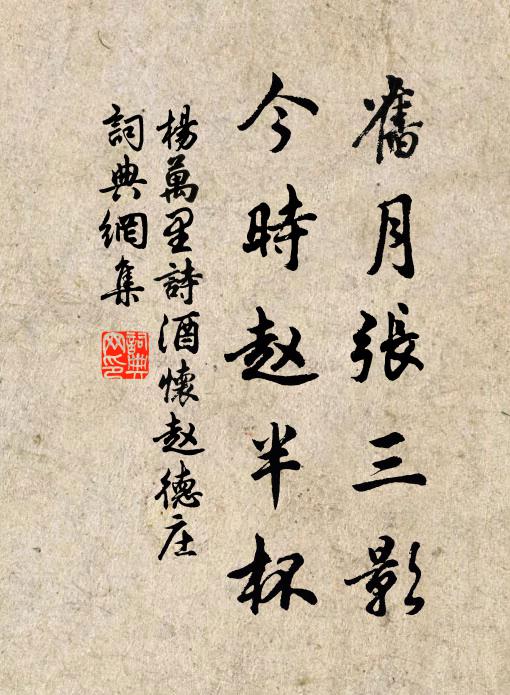 舊月張三影
今時赵半杯
楊萬里詩酒懷赵德庄
詞典網集
詞典
网印